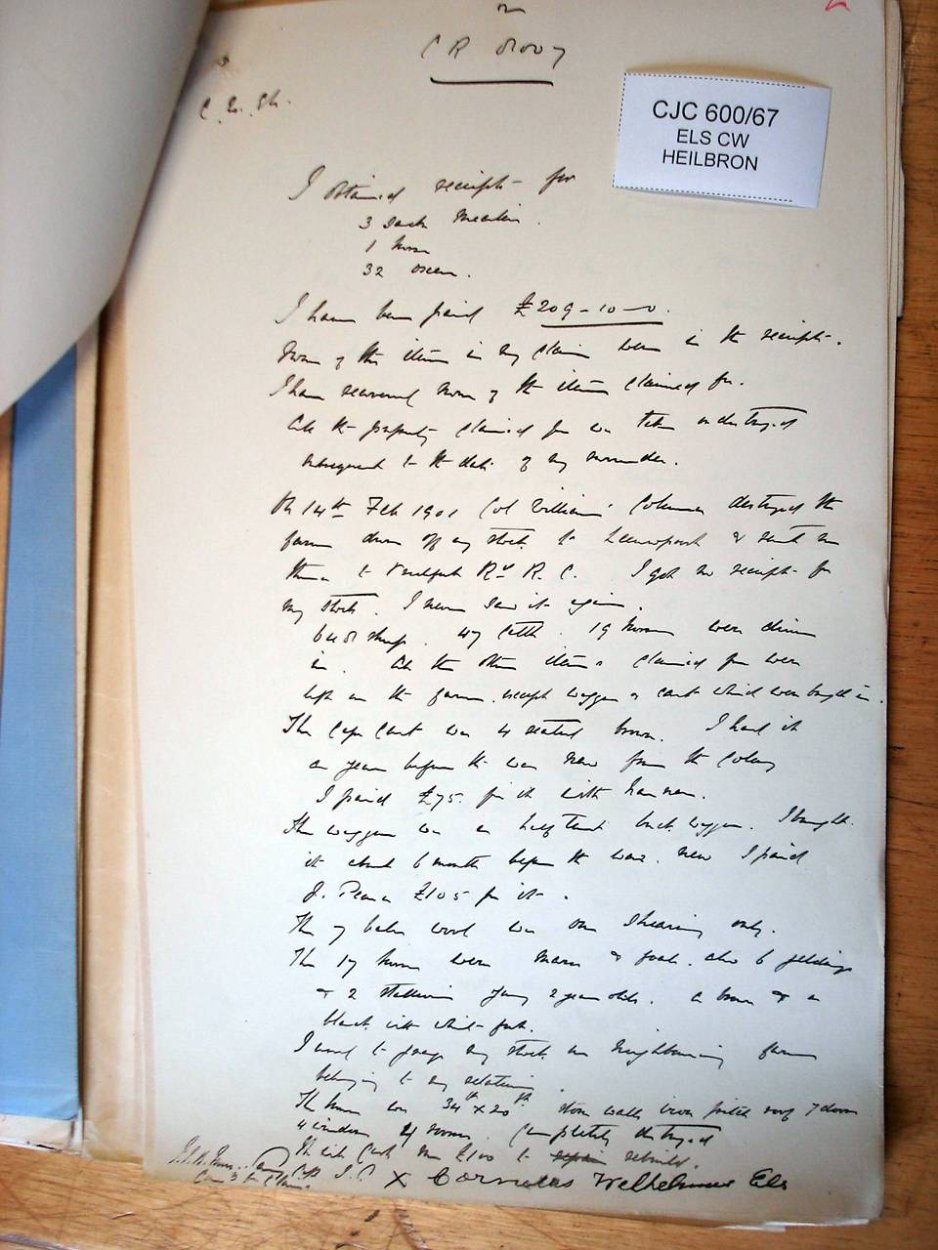 C R
CJC 600/67
ELS CW
HEILBRON
I obtained receipt for
3 sacks mealies.
1 horse
32 oxen.
I have been paid £209-10-0.
None of the items in my claim were in the receipt.
I have received none of the items claimed for.
All the property claimed for was taken or destroyed
subsequent to the date of my surrender.
On 14th Feb 1901 Col Williams' Column destroyed the
farm drove off my stock to & sent me
then to R. C. I got no receipt for
my stock. I never saw it again.
sheep. 47 cattle. 19 horses were driven
in. All the other items claimed for were
left on the farm, except waggon & cart which were brought in.
The Cape Cart was 4 seated brown. I had it
a year before the war new from the Colony
I paid £75 for it with harness.
The waggon was a half tent buck waggon. I bought
it about 6 months before the war. new I paid
J. £105 for it.
The 7 bales wool was one shearing only.
The 17 horses were mares & foals. also 6 geldings
& 2 stallions young 2 year olds. a brown & a
black with white foot.
I used to graze my stock on neighbouring farms
belonging to my relations.
The house was 34 x 20 stone walls iron pitch roof 7 doors
4 windows rooms. Completely destroyed
It will cost me £100 to repair rebuild.
X Cornelus Welhelmus Els